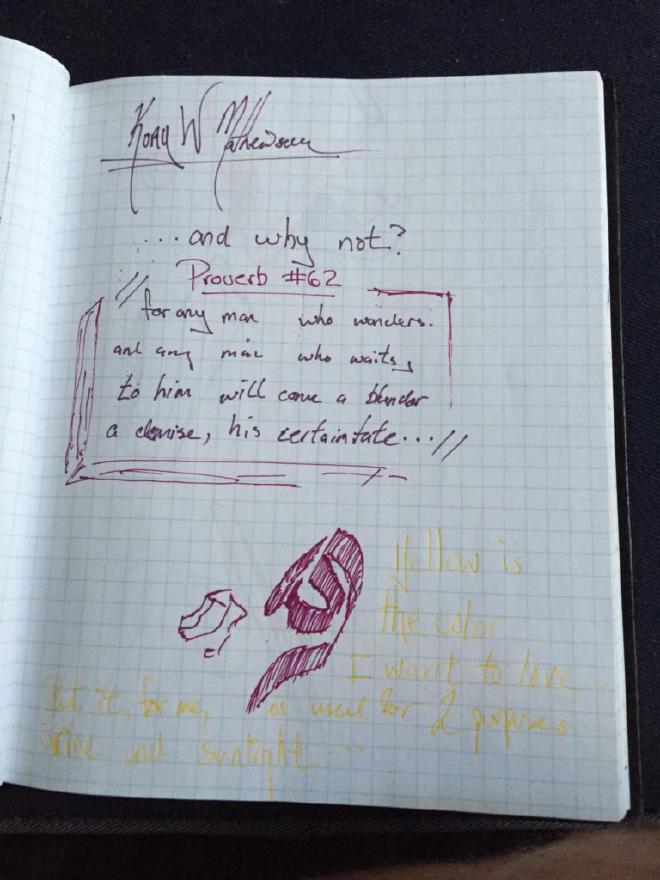 Kory W Mathewson
... and why not?
Proverb #62
"for any man who wonders.
and any man who waits,
to him will come a blunder
a demise, his certaintate..."
Yellow is
the color
I want to love
But it, for me, is used for 2 purposes
urine and sunlight...